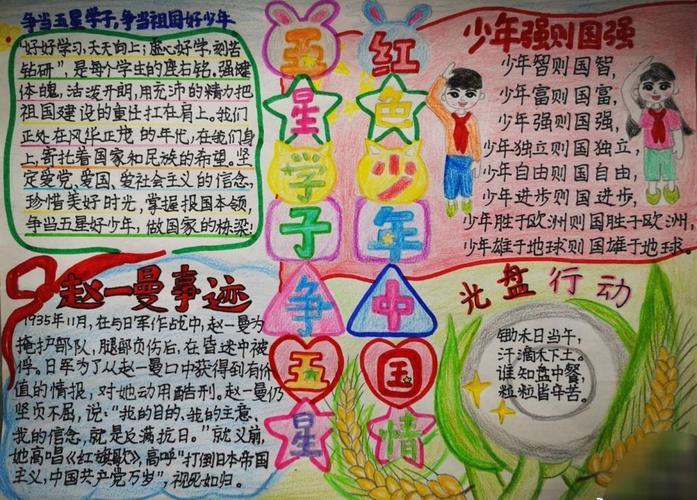 争当五星学子，争当祖国好少年
"好好学习，天天向上；虚心好学，刻苦
钻研"，是每个学生的座右铭。强健
体魄，活泼开朗，用充沛的精力把
祖国建设的重任扛在肩上。我们
正处在风华正茂的年代，在我们身
上，寄托着国家和民族的希望。坚
定爱党、爱国、爱社会主义的信念，
珍惜美好时光，掌握报国本领，
争当五星好少年，做国家的栋梁！
五星学子争五星
红色少年中国情
少年强则国强
少年智则国智，
少年富则国富，
少年强则国强，
少年独立则国独立，
少年自由则国自由，
少年进步则国进步，
少年胜于欧洲则国胜于欧洲，
少年雄于地球则国雄于地球。
赵一曼事迹
1935年11月，在与日军作战中，赵一曼为
掩护部队，腿部负伤后，在昏迷中被
俘。日军为了从赵一曼口中获得到有价
值的情报，对她动用酷刑。赵一曼仍
坚贞不屈，说："我的目的，我的主意，
我的信念，就是反满抗日。"就义前，
她高唱《红旗歌》，高呼"打倒日本帝国
主义，中国共产党万岁"，视死如归。
光盘行动
锄禾日当午，
汗滴禾下土。
谁知盘中餐，
粒粒皆辛苦。